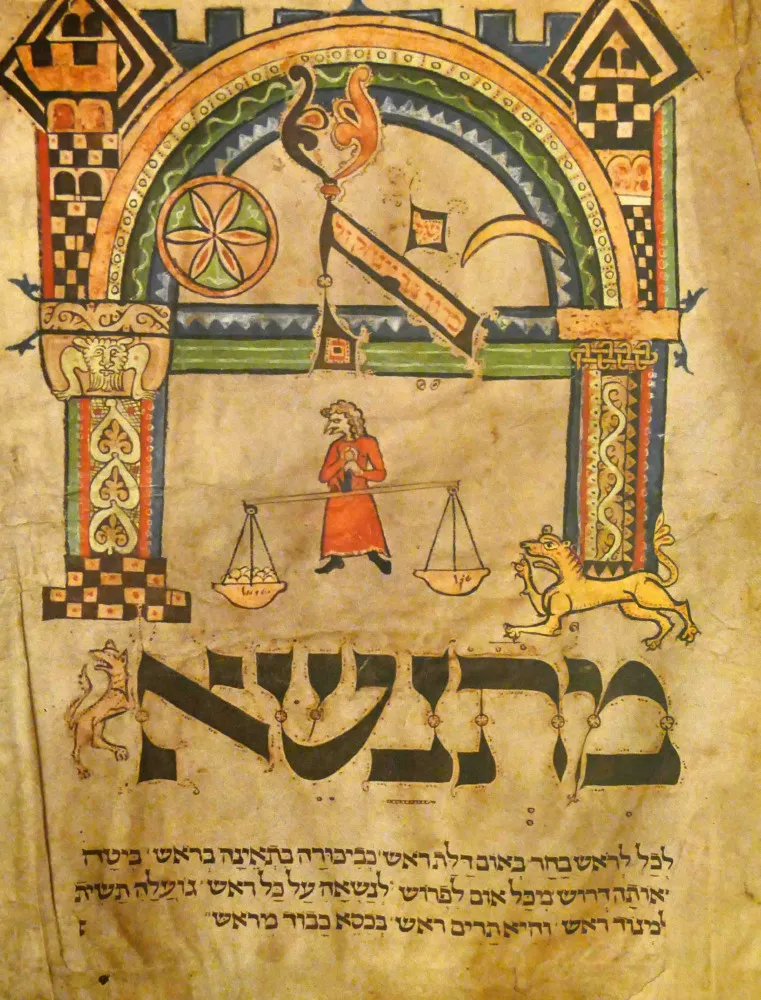 אל
מתנשא
לכל לראש בחר באום דלת ראש כביכורה בתאינה בראש ביטה
אותה דרוש מכל אום לפרוש לנשאה על כל ראש גועלה תשית
למנוד ראש והיא תרים ראש בכסא כבוד מראש